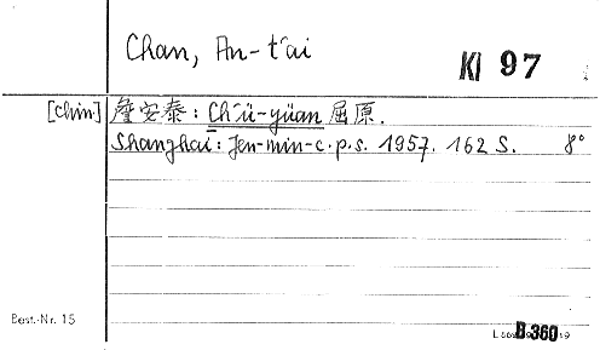 Chan, An-t'ai
KI 97
[Chin.] 詹安泰: Ch'ü-yüan 屈原.
Shanghai: Jen-min-c.p.s. 1957. 162 S. 8°
Best.-Nr. 15
B 360